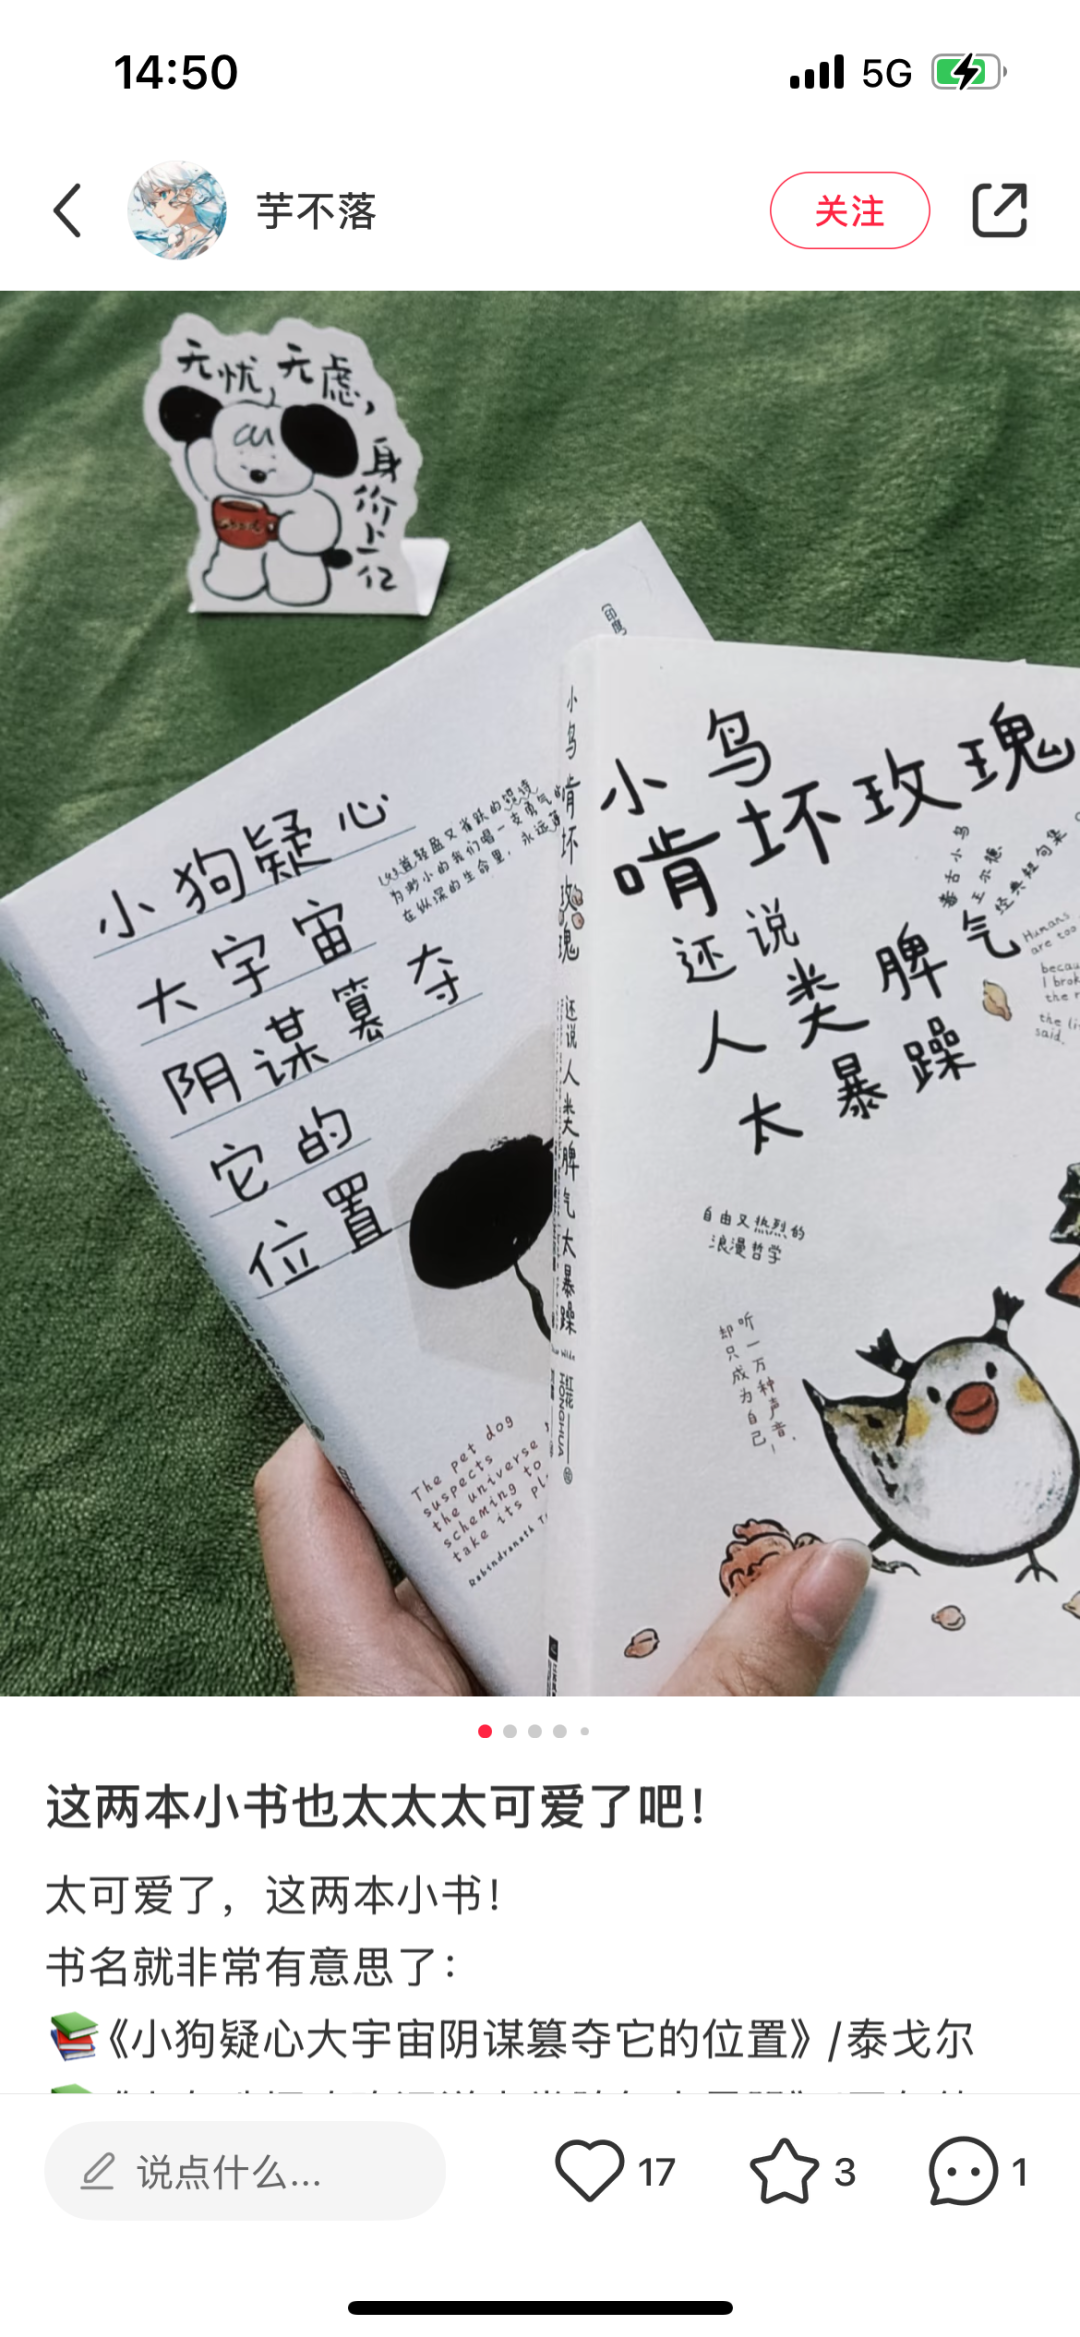 14:50
5G
芋不落
关注
无忧,无虑,
身价上亿
小狗疑心
大宇宙
阴谋篡夺
它的
位置
为渺小的我们唱一支勇气的
在纵深的生命里,永远
The pet dog
suspects
the universe
scheming to
take its pl
Rabindranath T
小鸟啃坏玫瑰 还说人类脾气太暴躁
红花
HONGHUA
小鸟
啃坏玫瑰
还说
人类脾气
太暴躁
毒舌小鸟
王尔德
经典短句集
Humans
are too
becau
I brok
the r
the li
said.
自由又热烈的
浪漫哲学
听一万种声音,
却只成为自己!
这两本小书也太太太可爱了吧!
太可爱了,这两本小书!
书名就非常有意思了:
《小狗疑心大宇宙阴谋篡夺它的位置》/泰戈尔
说点什么...
17
3
1